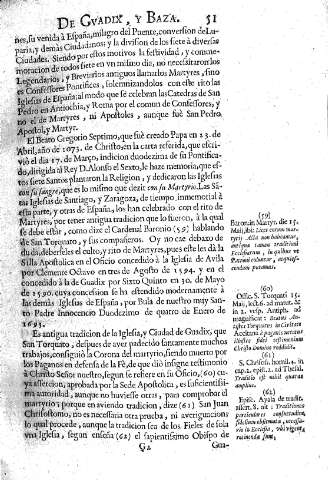 DE GVADIX, Y BAZA. 51
nes, su venida à España, milagro del Puente, conversion de Lu-
paria, y demàs Ciudadanos; y la division de los siete à diversas
Ciudades. Siendo por estos motivos la festividad, y comme-
moracion de todos siete en vn mismo dia, no necesitaron los
Legendarios, y Breviarios antiguos llamarlos Martyres, sino
es Confessores Pontifices, solemnizandolos con este rito las
Iglesias de España; al modo que se celebran las Catedras de San
Pedro en Antiochia, y Roma por el comun de Confessores, y
no el de Martyres, ni Apostoles, aunque fuè San Pedro
Apostol, y Martyr.
El Beato Gregorio Septimo, que fuè creado Papa en 23. de
Abril, año de 1073. de Christo, en la carta referida, que escri-
viò el dia 17. de Março, indicion duodezima de su Pontifica-
do, dirigida al Rey D. Alonso el Sexto, le haze memoria, que
estos siete Santos plantaron la Religion, y dedicaron las Iglesias
con su sangre, que es lo mismo que dezir con su Martyrio. Las Sã-
tas Iglesias de Santiago, y Zaragoza, de tiempo immemorial à
esta parte, y otras de España, los han celebrado con el rito de
Martyres, por tener antigua tradicion que lo fueron, à la qual
se debe estar, como dize el Cardenal Baronio (59) hablando
de San Torquato, y sus compañeros. Oy no cae debaxo de
duda, deberseles el culto, y rito de Martyres, pues este les dà la
Silla Apostolica en el Oficio concedido à la Iglesia de Avila
por Clemente Octavo en tres de Agosto de 1594. y en el
concedido à la de Guadix por Sixto Quinto en 30. de Mayo
de 1590. cuya concession se ha estendido modernamente à
las demàs Iglesias de España, por Bula de nuestro muy San-
to Padre Innocencio Duodezimo de quatro de Enero de
1693.
Es antigua tradicion de la Iglesia, y Ciudad de Guadix, que
San Torquato, despues de aver padecido santamente muchos
trabajos, consiguiò la Corona del martyrio, siendo muerto por
los Paganos en defensa de la Fè, de que diò insigne testimonio
à Christo Señor nuestro, segun se refiere en su Oficio, (60) cu-
ya assercion, aprobada por la Sede Apostolica, es suficientissi-
ma autoridad, aunque no huviesse otras, para comprobar el
martyrio; porque en aviendo tradicion, dize (61) San Juan
Chrisostomo, no es necessaria otra prueba, ni averiguaciones
lo qual procede, aunque la tradicion sea de los Fieles de sola
vna Iglesia, segun enseña (62) el sapientissimo Obispo de
G2 Gua-
(59)
Baron. in Martyr. die 15.
Maii, ibi:
(60)
Offic. S. Torquati 15.
Maii, lect. 6. ad matut. &
in 2. vesp. Antiph. ad
(61)
S. Chrisost. homil. 4. in
cap. 2. epist. 2. ad Thesal.
Traditio est nihil quæras
amplius.
(62)
Episc. Ayala de tradit.